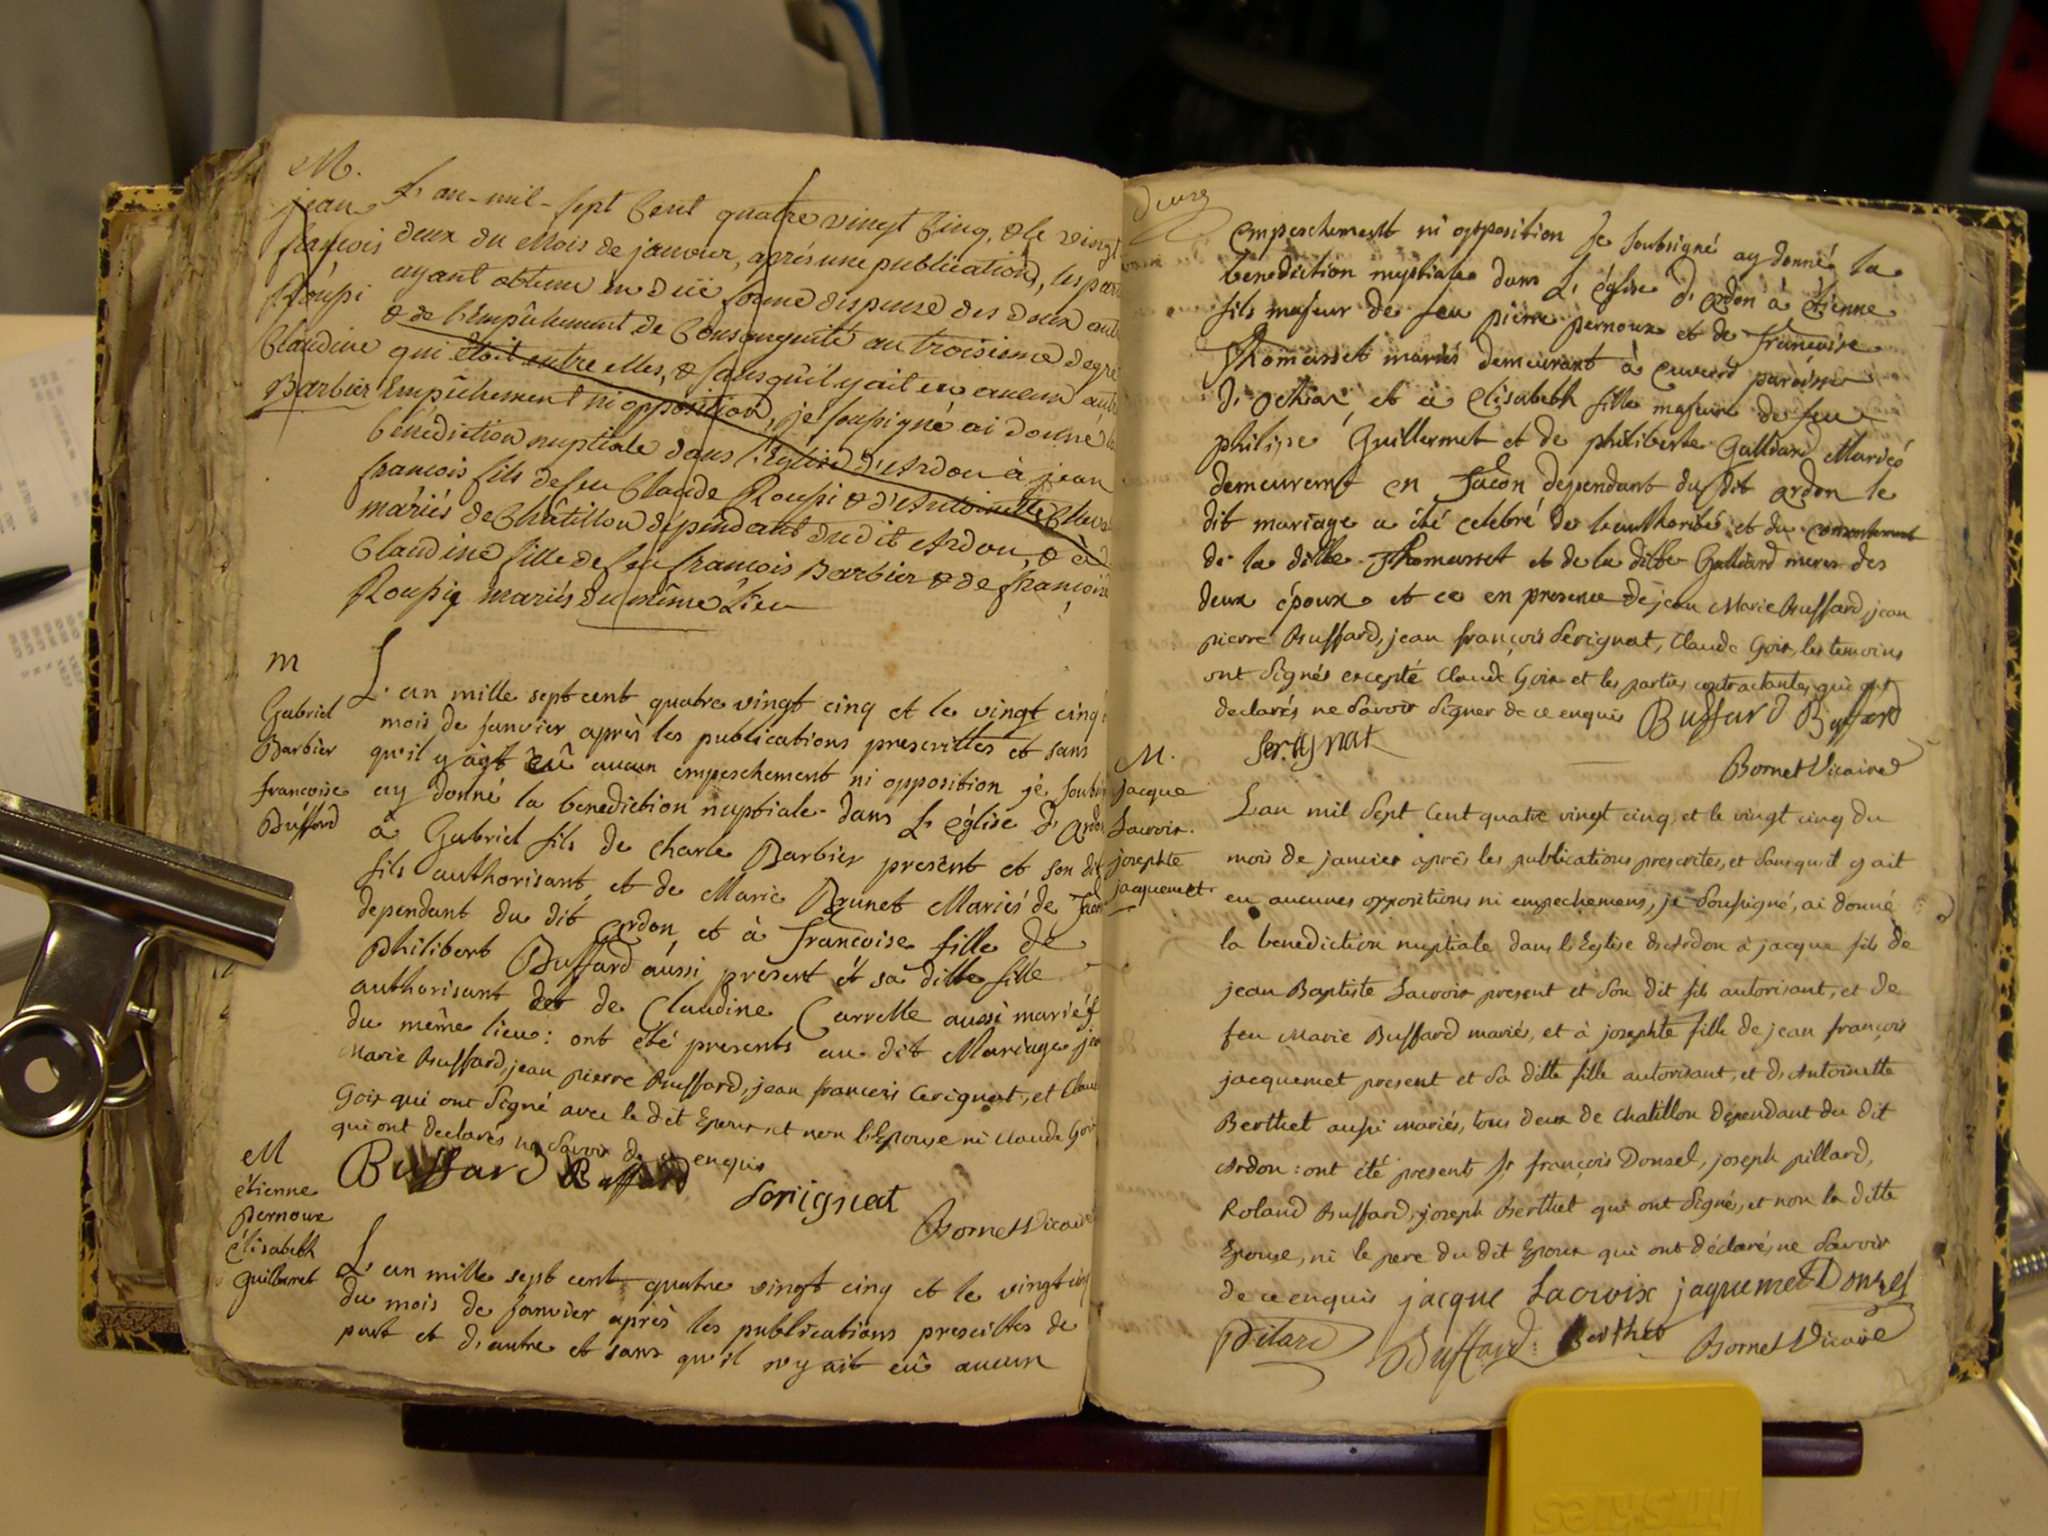 M.
jean
françois
Roupi
Claudine
Barbier
L'an mil sept Cent quatre vingt Cinq, & le vingt
deux du Mois de janvier, après une publication, les par
ayant obtenu en düe forme dispense des deux autr
& de l'empêchement de Consanguinité au troisieme degré
qui étoit entre elles, & sans qu'il y ait eu aucun autr
Empêchement ni opposition, je soussigné ai donné la
bénédiction nuptiale dans l'Eglise d'Ardon à jean
françois fils de feu Claude Roupi & d'Antoinette Cheval
mariés de Châtillon dépendant dudit Ardon, & à
Claudine fille de feu françois Barbier & de françoise
Roupi mariés du même Lieu
M
Gabriel
Barbier
francoise
Buffard
L'an mille sept cent quatre vingt cinq et le vingt cinq
mois de janvier après les publications prescrittes et sans
qu'il y ayt eû aucun empeschement ni opposition je soubsi
ay donné la benediction nuptiale dans L'église d'Ardon
à Gabriel fils de charle Barbier present et son dit
fils authorisant et de Marie Brunet Mariés de
dependant du dit ardon et à francoise fille de
Philibert Buffard aussi present et sa ditte fille
authorisant et de Claudine Carrelle aussi mariés
du même lieu: ont été presents au dit Mariage je
Marie Buffard, jean pierre Buffard, jean francois Cerignat, et Claude
Goix qui ont signé avec le dit Epoux et non l'Epouse ni Claude Goix
qui ont declarés ne savoir de ce enquis
Buffard Buffard
Serignat
Bornet Vicaire
M
étienne
Pernoux
élisabeth
Guillermet
L'an mille sept cent quatre vingt cinq et le vingt cinq
du mois de janvier après les publications prescittes de
part et d'autre et sans qu'il n'y ait eû aucun
empeschement ni opposition Je soubsigné ay donné la
benediction nuptiale dans L'église d'ardon à étienne
fils majeur de feu pierre pernoux et de francoise
Thomasset mariés demeurant à paroisse
d'ochiaz, et à élisabeth fille majeure de feu
philippe Guillermet et de philiberte Galliard Mariés
demeurant en Jacon dependant du dit ardon le
dit mariage a été celebré de l'authorité et du consentement
de la ditte Thomasset et de la ditte Galliard meres des
deux époux et ce en presence de jean Marie Buffard, jean
pierre Buffard, jean françois Serignat, Claude Goix, les temoins
ont signés excepté Claude Goix et les parties contractantes qui ont
declarés ne savoir signer de ce enquis Buffard Buffard
Serignat
Bornet Vicaire
M.
Jacque
Lacroix.
josephte
jacquemet
L'an mil sept Cent quatre vingt cinq, et le vingt cinq du
mois de janvier après les publications prescrites, et sans qu'il y ait
eu aucunes oppositions ni empechemens, je soussigné, ai donné
la benediction nuptiale dans l'Eglise d'Ardon à jacque fils de
jean Baptiste Lacroix present et son dit fils autorisant, et de
feu Marie Buffard mariés, et à josephte fille de jean françois
jacquemet present et sa ditte fille autorisant, et d'Antoinette
Berthet aussi mariés, tous deux de Chatillon dépendant du dit
Ardon: ont été present Sr françois Donzel, joseph pillard,
Roland Buffard, joseph Berthet qui ont signé, et non la ditte
Epouse, ni le pere du dit Epoux qui ont déclaré, ne savoir
de ce enquis jacque Lacroix jaquemet Donzel
Pilard Buffard Berthet Bornet Vicaire